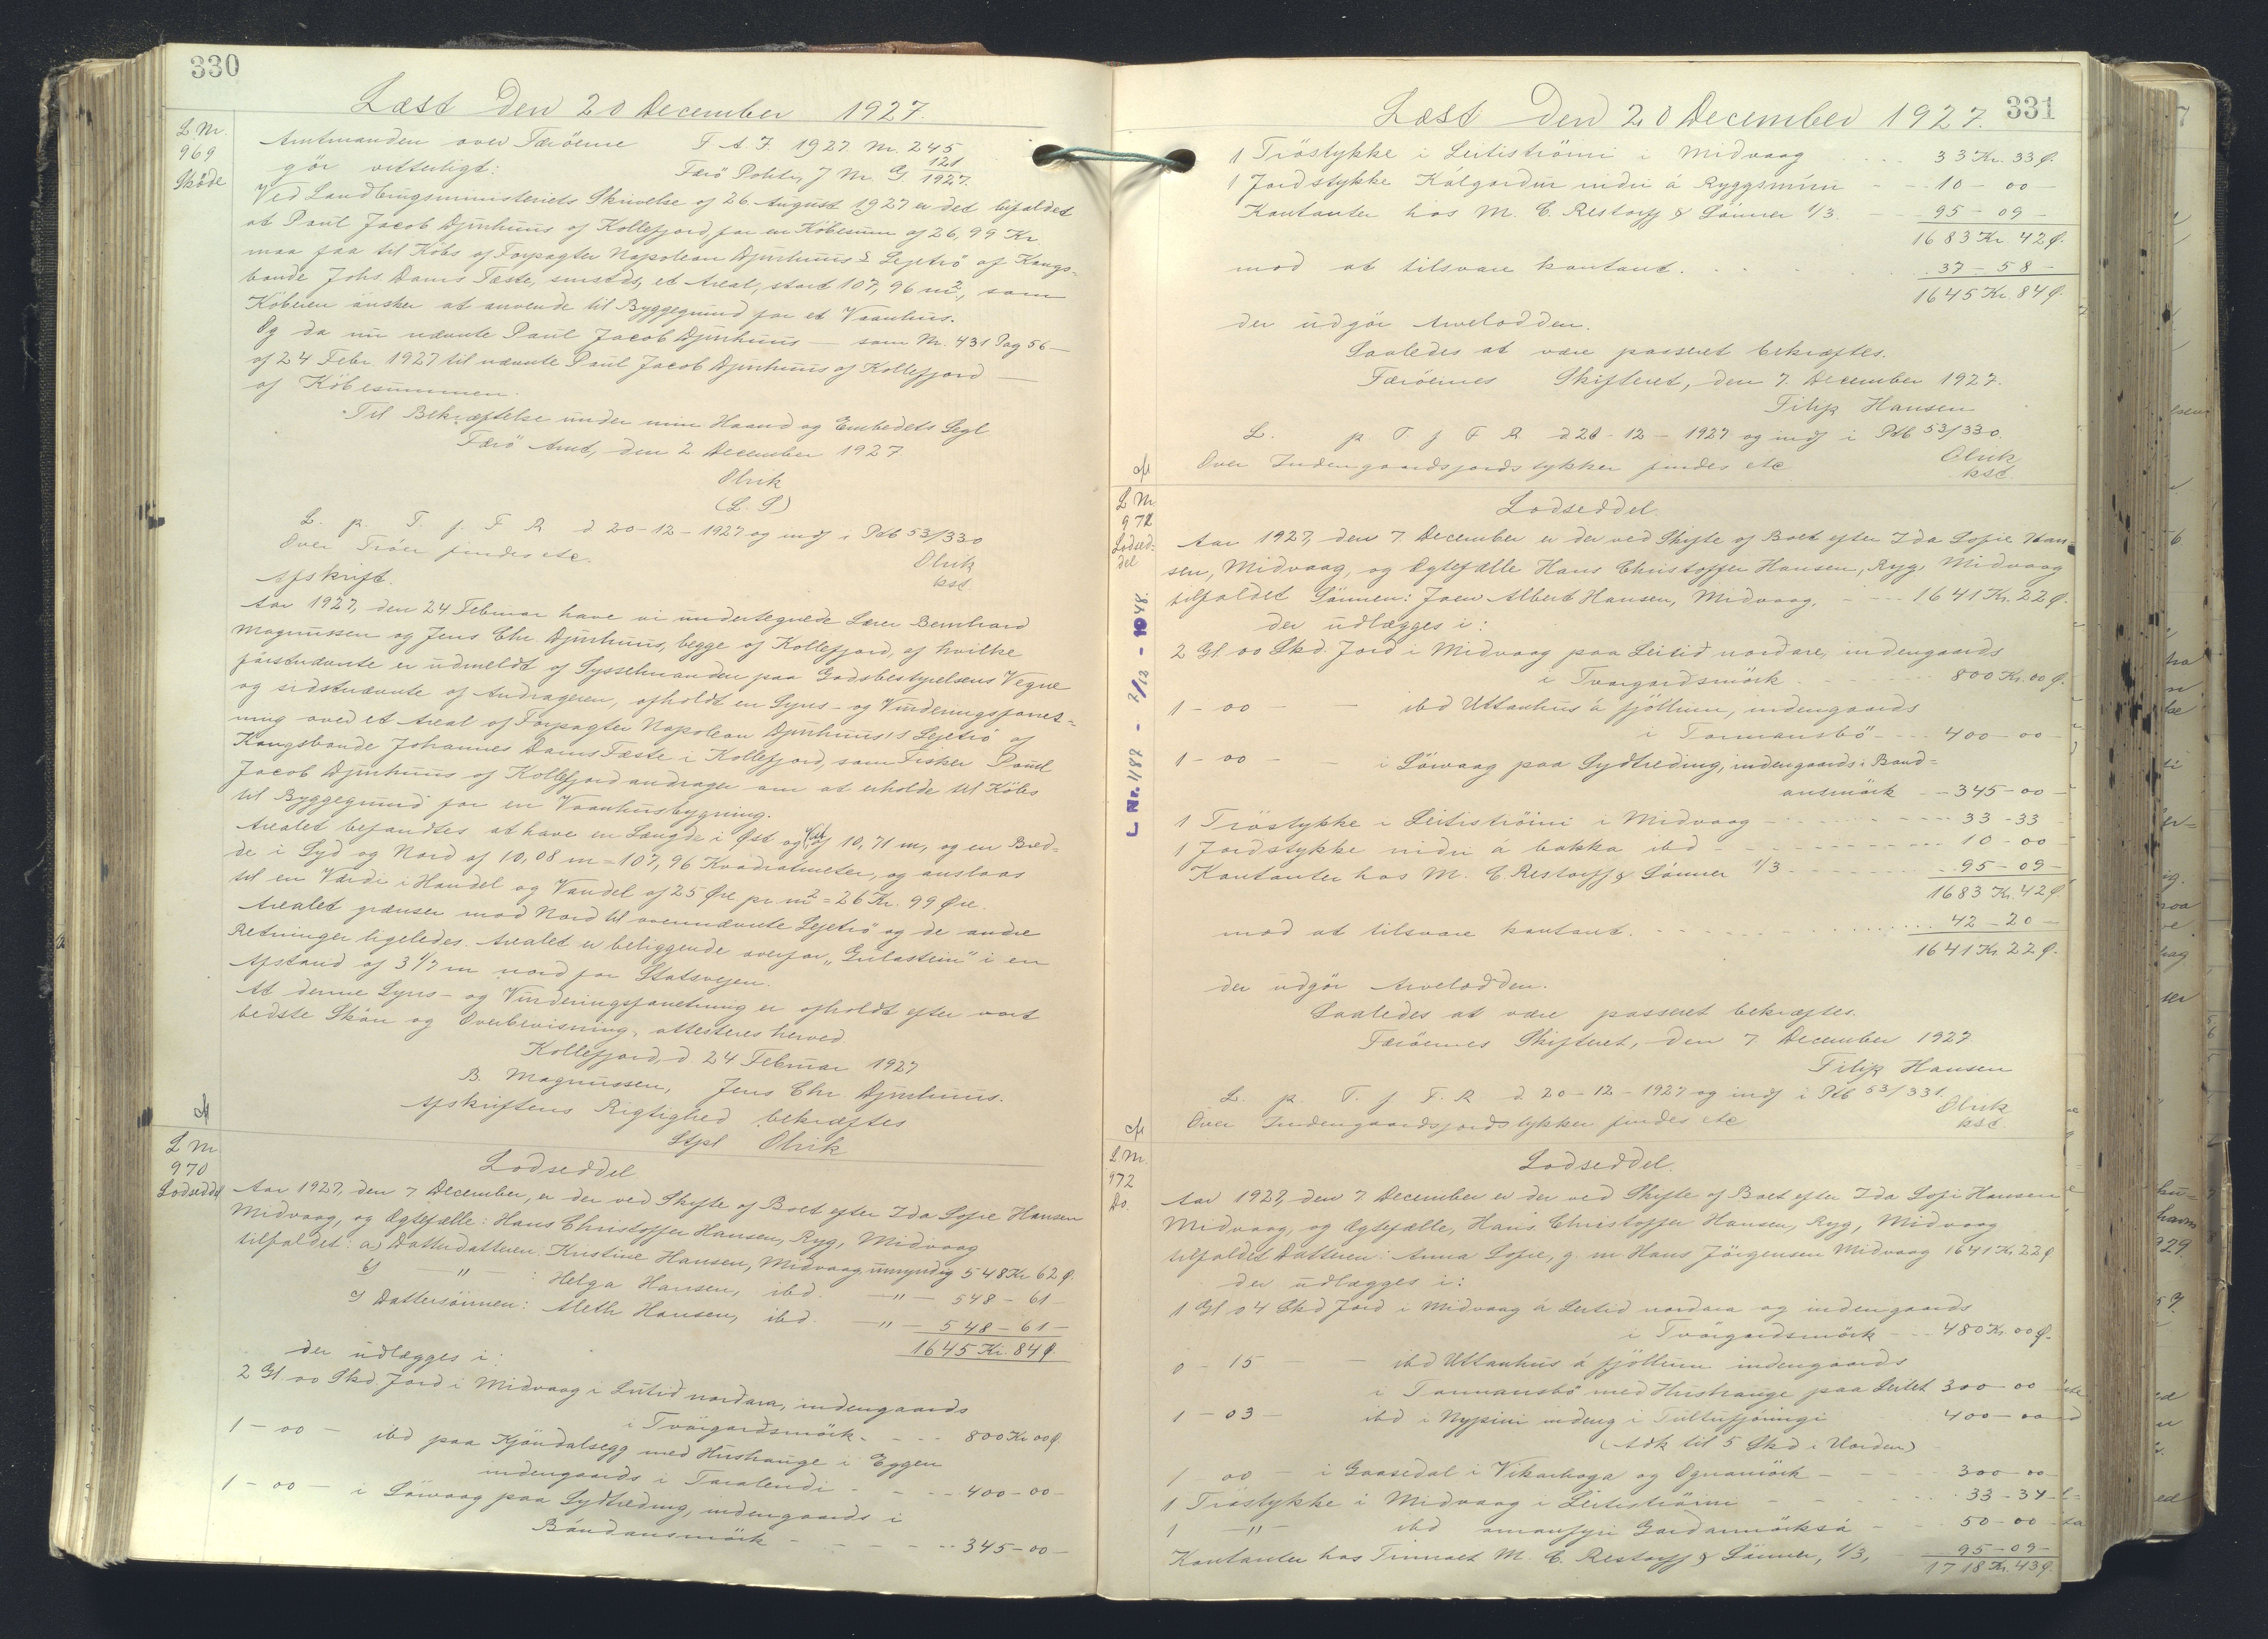 330
Læst den 20 December 1927.
L. Nr.
969
Skøde
Amtmanden over Færöerne T. A. J. 1927 Nr. 245
gör vitterligt: Færö Politi, J Nr. G 121/1927.
Ved Landbrugsministeriets Skrivelse af 26 August 1927 er det bifaldet
at Paul Jacob Djurhuus af Kollefjord, for en Köbesum af 26,99 Kr
maa faa til Köbs af Forpagter Napoleon Djurhuus's Lejetrö af Kongs-
bonde Johs. Dams Fæste, smstds, et Areal, stort 107,96 m², som
Köberen önsker at anvende til Byggegrund for et Vaanhus.
Og da nu nævnte Paul Jacob Djurhuus — som Nr. 431 Pag 56 —
af 24 Febr. 1927 til nævnte Paul Jacob Djurhuus af Kollefjord —
af Köbesummen.
Til Bekræftelse under min Haand og Embedets Segl
Færö Amt, den 2 December 1927.
Olrik
(L. S)
L. p. T. f. F R d 20-12-1927 og indf i Ptb 53/330
Over Tröer findes etc.
Olrik
kst
Afskrift.
Aar 1927, den 24 Februar have vi undertegnede Lærer Bernhard
Magnussen og Jens Chr. Djurhuus, begge af Kollefjord, af hvilke
förstnævnte er udmeldt af Sysselmanden paa Godsbestyrelsens Vegne
og sidstnævnte af Andrageren, afholdt en Syns- og Vurderingsforret-
ning over et Areal af Forpagter Napoleon Djurhuus's Lejetrö af
Kongsbonde Johannes Dams Fæste i Kollefjord, som Fisker Poul
Jacob Djurhuus af Kollefjord andrager om at erholde til Köbs
til Byggegrund for en Vaanhusbygning.
Arealet befandtes at have en Længde i Øst og Vest af 10,71 m, og en Bred-
de i Syd og Nord af 10,08 m = 107,96 Kvadratmeter, og anslaas
til en Værdi i Handel og Vandel af 25 Øre pr m² = 26 Kr. 99 Øre.
Arealet grænser mod Nord til ovennævnte Lejetrö og de andre
Retninger ligeledes. Arealet er beliggende overfor „Gulastein" i en
Afstand af 3 1/2 m nord for Statsvejen.
At denne Syns- og Vurderingsforretning er afholdt efter vort
bedste Skön og Overbevisning, attesteres herved.
Kollefjord, d. 24 Februar 1927
B. Magnussen, Jens Chr. Djurhuus.
Afskriftens Rigtighed bekræftes
Stpl Olrik
L Nr
970
Lodseddel
Lodseddel
Aar 1927, den 7 December, er der ved Skifte af Boet efter Ida Sofie Hansen
Midvaag, og Ægtefælle: Hans Christoffer Hansen, Ryg, Midvaag
tilfaldet: a) Datterdatteren: Kristine Hansen, Midvaag, umyndig 548 Kr 62 Ø.
b) — " — : Helga Hansen, ibd. — " — 548 - 61 -
c) Dattersönnen: Meth Hansen, ibd. — " — 548 - 61 -
1645 Kr. 84 Ø
der udlægges i:
2 Gl. 00 Skd. Jord i Midvaag i Leitid nordara, indengaards
i Tvörgardsmörk - - - 800 Kr 00 Ø
1 - 00 - ibd paa Kjöndalsegg med Hushauge i Eggen
indengaards i Taralendi - - - 400 - 00 -
1 - 00 - i Sörvaag paa Sydtreding, indengaards i
Bándansmörk - - - 345 - 00 -
331
Læst den 20 December 1927.
1 Tröstykke i Leitiströini i Midvaag - - 33 Kr. 33 Ø.
1 Jordstykke Kálgardur nidri á Ryggsmúni - - 10 - 00 -
Kontanter hos M. C. Restorff & Sönner 1/3. - 95 - 09 -
1683 Kr 42 Ø.
mod at tilsvare kontant. - - - 37 - 58 -
1645 Kr. 84 Ø.
der udgör Arvelodden.
Saaledes at være passeret bekræftes.
Færöernes Skifteret, den 7. December 1927.
Filip Hansen
L. p T. f F R d 20-12-1927 og indf i Ptb 53/330.
Over Indengaardsjordstykker findes etc
Olrik
kst.
L Nr
971
Lodsed-
del
L Nr. 1187 - 7/12 - 1048.
Lodseddel.
Aar 1927, den 7. December er der ved Skifte af Boet efter Ida Sofie Han-
sen, Midvaag, og Ægtefælle Hans Christoffer Hansen, Ryg, Midvaag
tilfaldet Sönnen: Joen Albert Hansen, Midvaag, - - 1641 Kr. 22 Ø.
der udlægges i:
2 Gl 00 Skd. Jord i Midvaag paa Leitid nordare, indengaards
i Tvorgardsmörk - - - 800 Kr. 00 Ø.
1 - 00 - - ibd Uttanhus á fjöllum, indengaards
i Tormansbö - - - 400 - 00 -
1 - 00 - - i Sörvaag paa Sydtreding, indengaards i Band-
ansmörk - - 345 - 00 -
1 Tröstykke i Leitiströini i Midvaag - - - 33 - 33 -
1 Jordstykke nidri á bakka ibd - - - 10 - 00 -
Kontanter hos M. C. Restorff & Sönner 1/3 - - - 95 - 09 -
1683 Kr. 42 Ø.
mod at tilsvare kontant. - - - 42 - 20 -
1641 Kr. 22 Ø.
der udgör Arvelodden.
Saaledes at være passeret bekræftes.
Færöernes Skifteret, den 7 December 1927
Filip Hansen
L. p. T. f F. R d 20-12-1927 og indf i Ptb 53/331.
Over Indengaardsjordstykker findes etc
Olrik
kst.
L Nr.
972
Do.
Lodseddel.
Aar 1927, den 7 December er der ved Skifte af Boet efter Ida Sofi Hansen
Midvaag, og Ægtefælle, Hans Christoffer Hansen, Ryg, Midvaag
tilfaldet Datteren: Anna Sofie, g. m Hans Jörgensen Midvaag 1641 Kr. 22 Ø
der udlægges i:
1 Gl 04 Skd Jord i Midvaag á Leitid nordara og indengaards
i Tvörgardsmörk - - 480 Kr. 00 Ø.
0 - 15 - - ibd Uttanhus á fjöllum indengaards
i Tormansbö med Hushauge paa Leitet 300 - 00
1 - 03 - ibd i Nypini indeng i Tultufjöningi 400 - 00
(Adk til 5 Skd i Norden)
1 - 00 - i Gaasedal i Vikarhaga og Ognamörk - - 300 - 00
1 Tröstykke i Midvaag i Leitiströini - - - 33 - 34
1 — " — ibd omanfyri Gardamörksá - - 50 - 00
Kontanter hos Firmaet M. C. Restorff & Sönner, 1/3, 95 - 09 -
1718 Kr. 43 Ø.